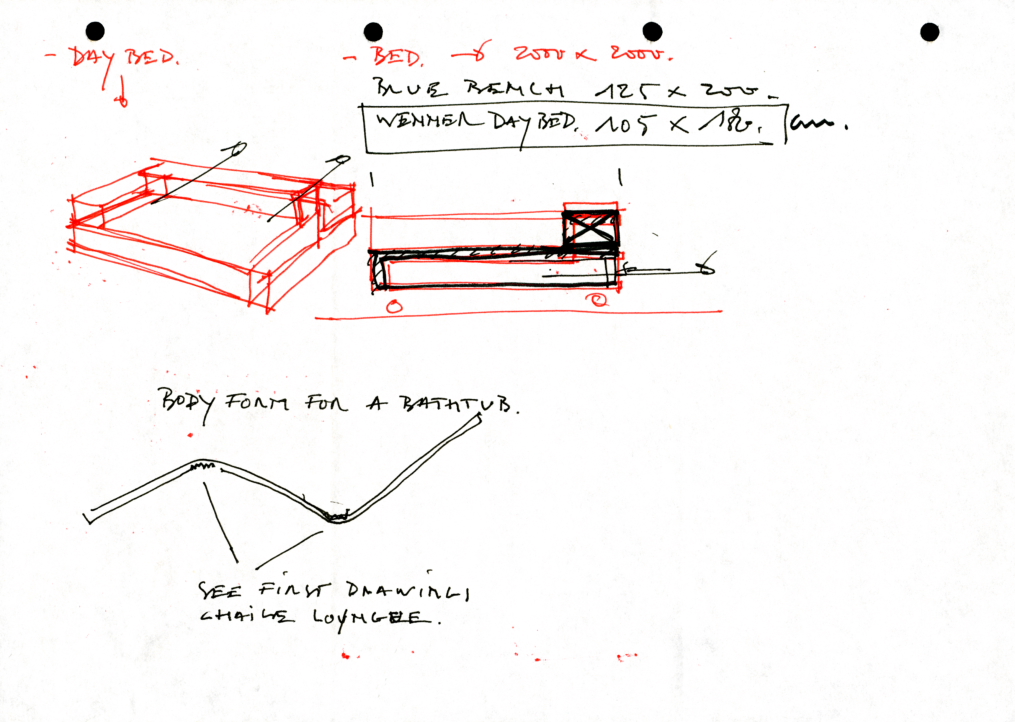 - DAY BED.
- BED. → 2000 x 2000.
BLUE BENCH 125 x 200.
WENNER DAY BED. 105 x 180. cm.
BODY FORM FOR A BATHTUB.
SEE FIRST DRAWINGS
CHAISE LOUNGE.